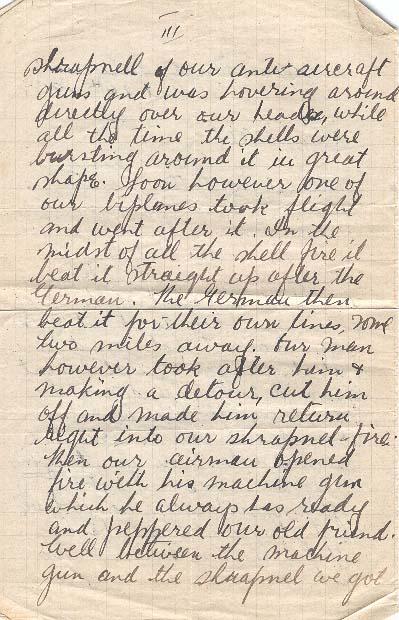 III
Shrapnell of our anti aircraft
guns and was hovering around
directly over our heads, while
all the time the shells were
bursting around it in great
shape. Soon however one of
our biplanes took flight
and went after it. In the
midst of all the shell fire it
beat it straight up after the
German. The German then
beat it for their own lines, some
two miles away. Our man
however took after him &
making a detour, cut him
off and made him return
right into our shrapnel-fire.
Then our airman opened
fire with his machine gun
which he always has ready
and peppered our old friend.
Well between the machine
gun and the shrapnel we got